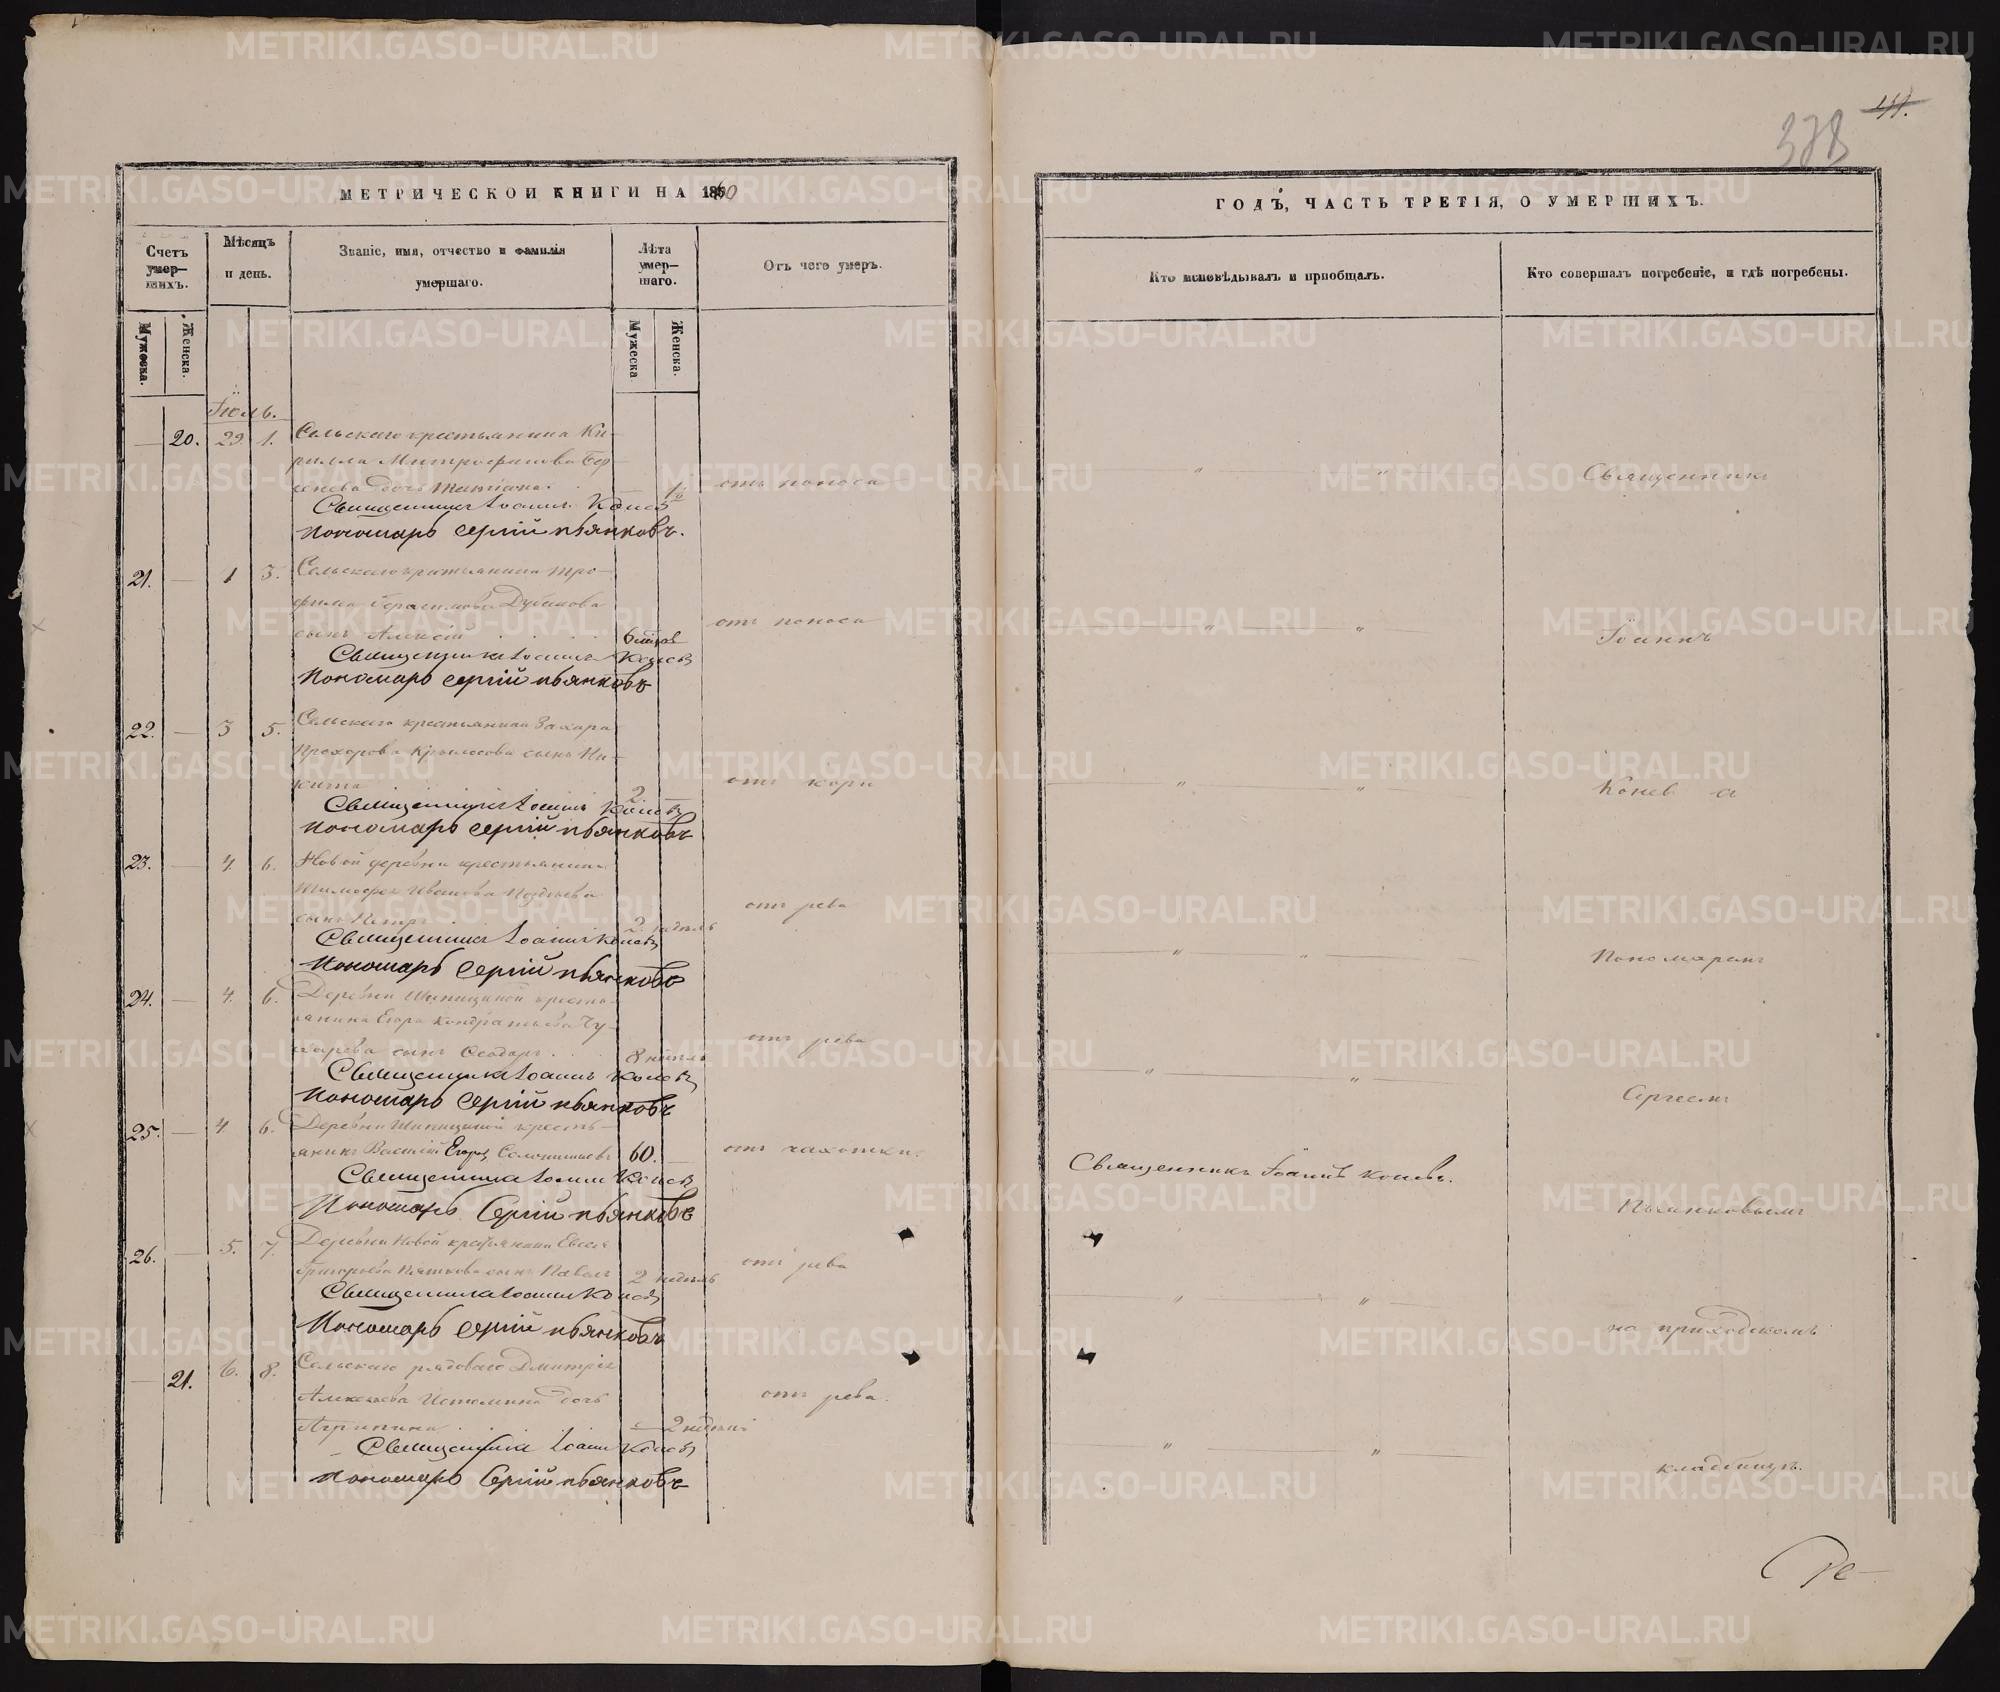 МЕТРИЧЕСКОЙ КНИГИ НА 1860
Счетъ умер—шихъ.
Мужеска.
Женска.
Мѣсяцъ и день.
Званіе, имя, отчество и фамилія умершаго.
Лѣта умер—шаго.
Мужеска
Женска.
Отъ чего умеръ.
Іюль.
20. 29. 1. Сельскаго крестьянина Ки-
рилла Митрофанова
дочь Татіана.
отъ поноса
Священникъ Іоаннъ Коневъ
Пономарь Сергій Пьянковъ.
21. 1 3. Сельскаго крестьянина Тро-
фима Герасимова
сынъ Алексій
отъ поноса
Священникъ Іоаннъ Коневъ
Пономарь Сергій Пьянковъ
22. 3 5. Сельскаго крестьянина Захара
Прохорова Крылосова сынъ Ни-
кита 2.
отъ кори
Священникъ Іоаннъ Коневъ
Пономарь Сергій Пьянковъ
23. 4. 6. Новой деревни крестьянина
Тимофея Иванова
сынъ Петръ 2. недѣль
отъ рева
Священникъ Іоаннъ Коневъ
Пономарь Сергій Пьянковъ
24. 4. 6. Деревни Шипициной кресть-
янина Егора Кондратьева Чу-
харева сынъ Ѳеодоръ 8 недѣль
отъ рева
Священникъ Іоаннъ Коневъ
Пономарь Сергій Пьянковъ
25. 4 6. Деревни Шипициной кресть-
янинъ Василій Егоровъ 60.
отъ чахотки.
Священникъ Іоаннъ Коневъ
Пономарь Сергій Пьянковъ
26. 5. 7. Деревни Новой крестьянина Евсея
Григорьева Пяткова сынъ Павелъ 2 недѣль
отъ рева
Священникъ Іоаннъ Коневъ
Пономарь Сергій Пьянковъ
21. 6. 8. Сельскаго рядоваго Дмитрія
Алексѣева Истомина дочь
Агрипина 2 недѣль
отъ рева.
Священникъ Іоаннъ Коневъ
Пономарь Сергій Пьянковъ
378
ГОДЪ, ЧАСТЬ ТРЕТІЯ, О УМЕРШИХЪ.
Кто исповѣдывалъ и пріобщалъ.
Кто совершалъ погребеніе, и гдѣ погребены.
Священникъ
Іоаннъ
Коневъ съ
Пономаремъ
Сергеемъ
Священникъ Іоаннъ Коневъ.
Пьянковымъ
на приходскомъ
кладбищѣ.
METRIKI.GASO-URAL.RU